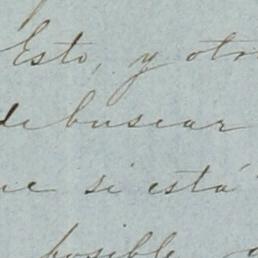 Esto, y otr
de buscar
ue si está
posible